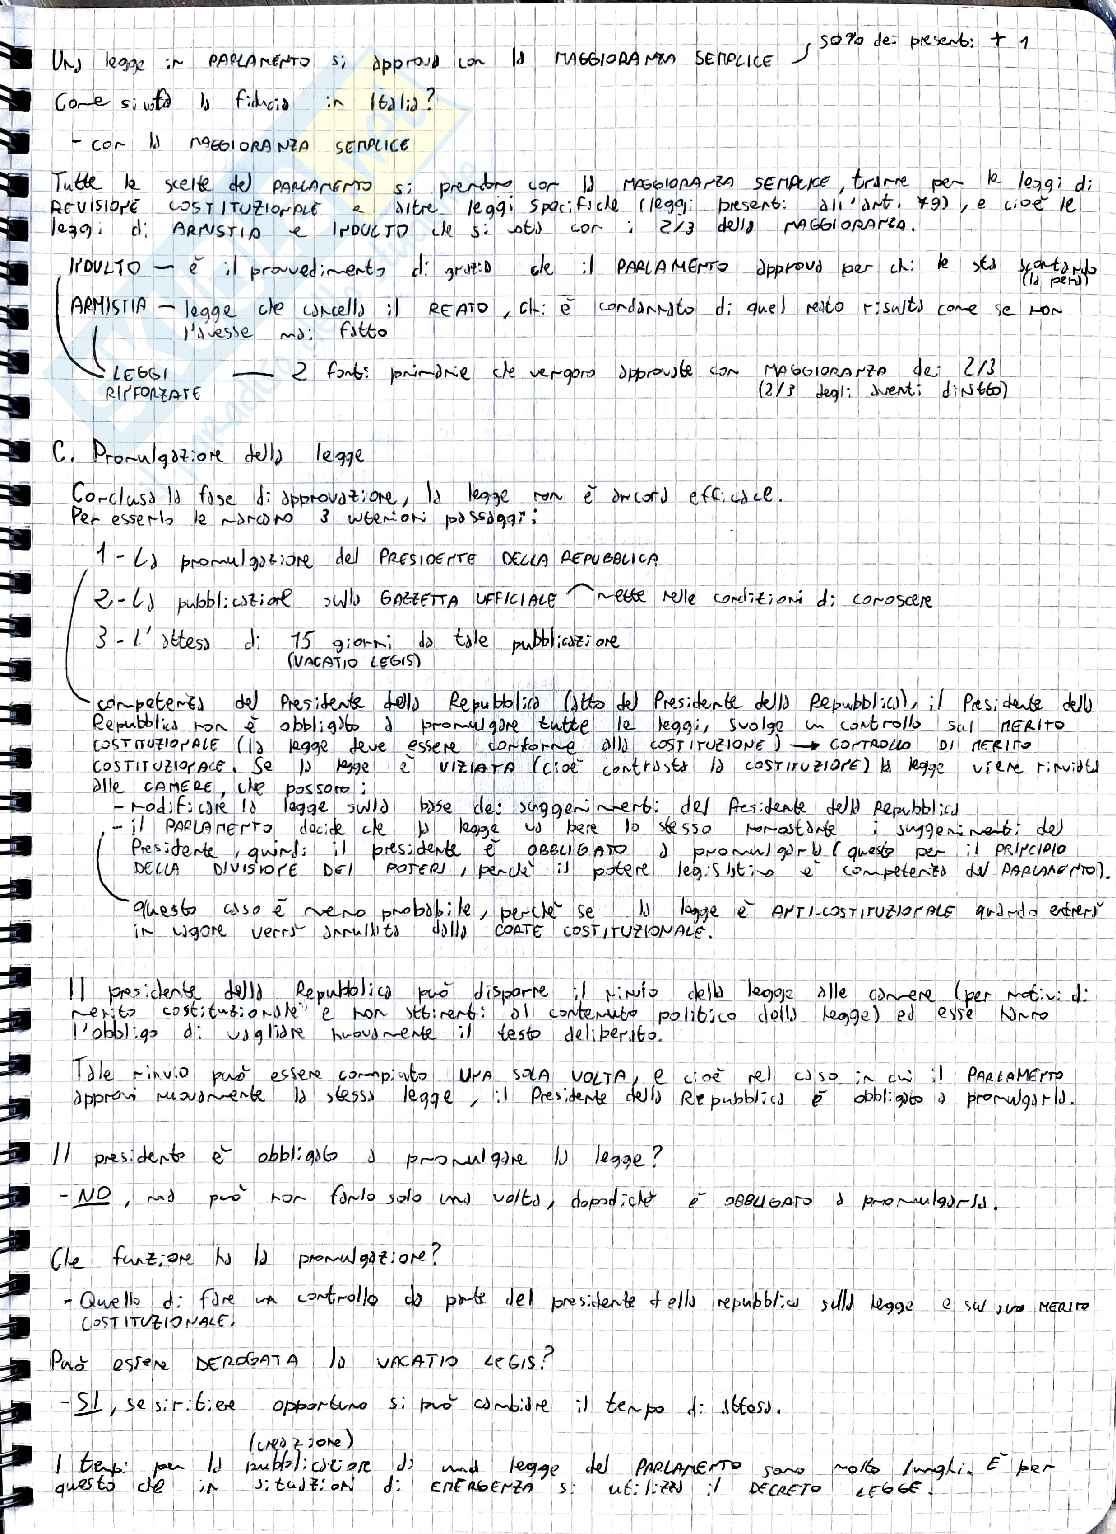 Una legge in PARLAMENTO si approva con la MAGGIORANZA SEMPLICE , 50% dei presenti + 1
Come si vota la fiducia in Italia?
- con la MAGGIORANZA SEMPLICE
Tutte le scelte del PARLAMENTO si prendono con la MAGGIORANZA SEMPLICE, tranne per le leggi di
REVISIONE COSTITUZIONALE e altre leggi specifiche (leggi presenti all'art. 79), e cioè le
leggi di AMNISTIA e INDULTO che si vota con i 2/3 della MAGGIORANZA.
INDULTO — è il provvedimento di grazia che il PARLAMENTO approva per chi le sta scontando
(la pena)
AMNISTIA — legge che cancella il REATO, chi è condannato di quel reato risulta come se non
l'avesse mai fatto
LEGGI — 2 fonti primarie che vengono approvate con MAGGIORANZA dei 2/3
RINFORZATE (2/3 degli aventi diritto)
C. Promulgazione della legge
Conclusa la fase di approvazione, la legge non è ancora efficace.
Per esserlo le mancano 3 ulteriori passaggi:
1 - La promulgazione del PRESIDENTE DELLA REPUBBLICA
2 - La pubblicazione sulla GAZZETTA UFFICIALE mette nelle condizioni di conoscere
3 - L'attesa di 15 giorni da tale pubblicazione
(VACATIO LEGIS)
competenza del Presidente della Repubblica (atto del Presidente della Repubblica), il Presidente della
Repubblica non è obbligato a promulgare tutte le leggi, svolge un controllo sul MERITO
COSTITUZIONALE (la legge deve essere conforme alla COSTITUZIONE) → CONTROLLO DI MERITO
COSTITUZIONALE. Se la legge è VIZIATA (cioè contrasta la COSTITUZIONE) la legge viene rinviata
alle CAMERE, che possono:
- modificare la legge sulla base dei suggerimenti del Presidente della Repubblica
- il PARLAMENTO decide che la legge va bene lo stesso nonostante i suggerimenti del
Presidente, quindi il presidente è OBBLIGATO a promulgarla (questo per il PRINCIPIO
DELLA DIVISIONE DEI POTERI, perchè il potere legislativo è competenza del PARLAMENTO).
questo caso è meno probabile, perchè se la legge è ANTI-COSTITUZIONALE quando entrerà
in vigore verrà annullata dalla CORTE COSTITUZIONALE.
Il presidente della Repubblica può disporre il rinvio della legge alle camere (per motivi di
"merito costituzionale" e non attinenti al contenuto politico della legge) ed esse hanno
l'obbligo di vagliare nuovamente il testo deliberato.
Tale rinvio può essere compiuto UNA SOLA VOLTA, e cioè nel caso in cui il PARLAMENTO
approvi nuovamente la stessa legge, il Presidente della Repubblica è obbligato a promulgarla.
Il presidente è obbligato a promulgare la legge?
- NO, ma può non farlo solo una volta, dopodichè è OBBLIGATO a promulgarla.
Che funzione ha la promulgazione?
- Quello di fare un controllo da parte del presidente della repubblica sulla legge e sul suo MERITO
COSTITUZIONALE.
Può essere DEROGATA la VACATIO LEGIS?
- SI, se si ritiene opportuno si può cambiare il tempo di attesa.
(creazione)
I tempi per la pubblicazione di una legge del PARLAMENTO sono molto lunghi. È per
questo che in situazioni di EMERGENZA si utilizza il DECRETO LEGGE.